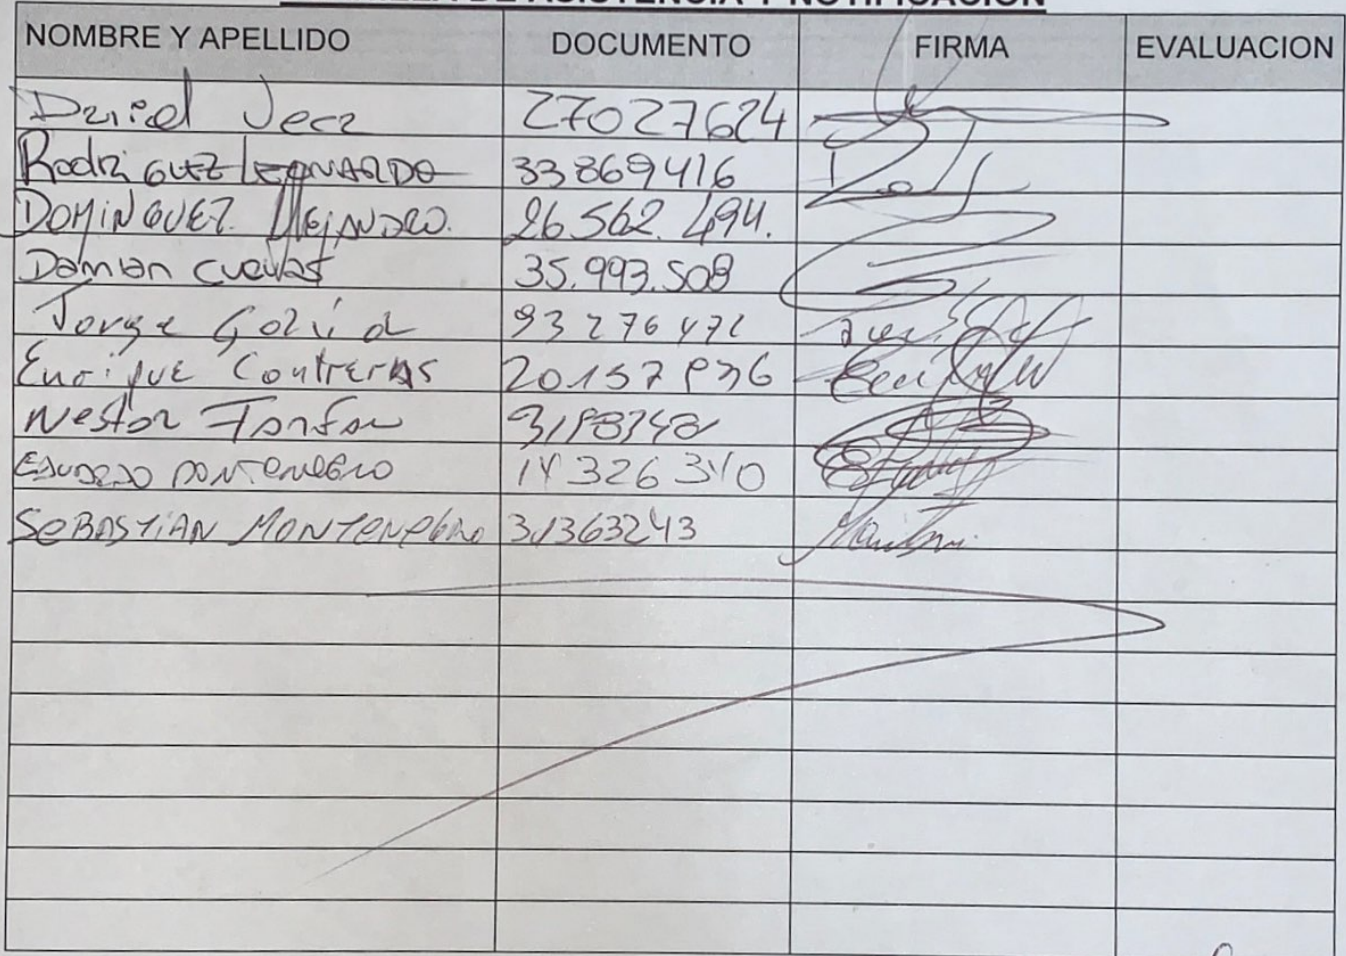 DE ASISTENCIA Y NOTIFICACION
NOMBRE Y APELLIDO DOCUMENTO FIRMA EVALUACION
Daniel Vera 27027624
Rodriguez Leonardo 33869416
DOMINGUEZ ALEJANDRO. 26.562.494.
Damian Cuevas 35.993.508
Jorge 93276472
Enrique Contreras 20157836
Nestor
EDUARDO MONTENEGRO 14326340
SEBASTIAN MONTENEGRO 31363243